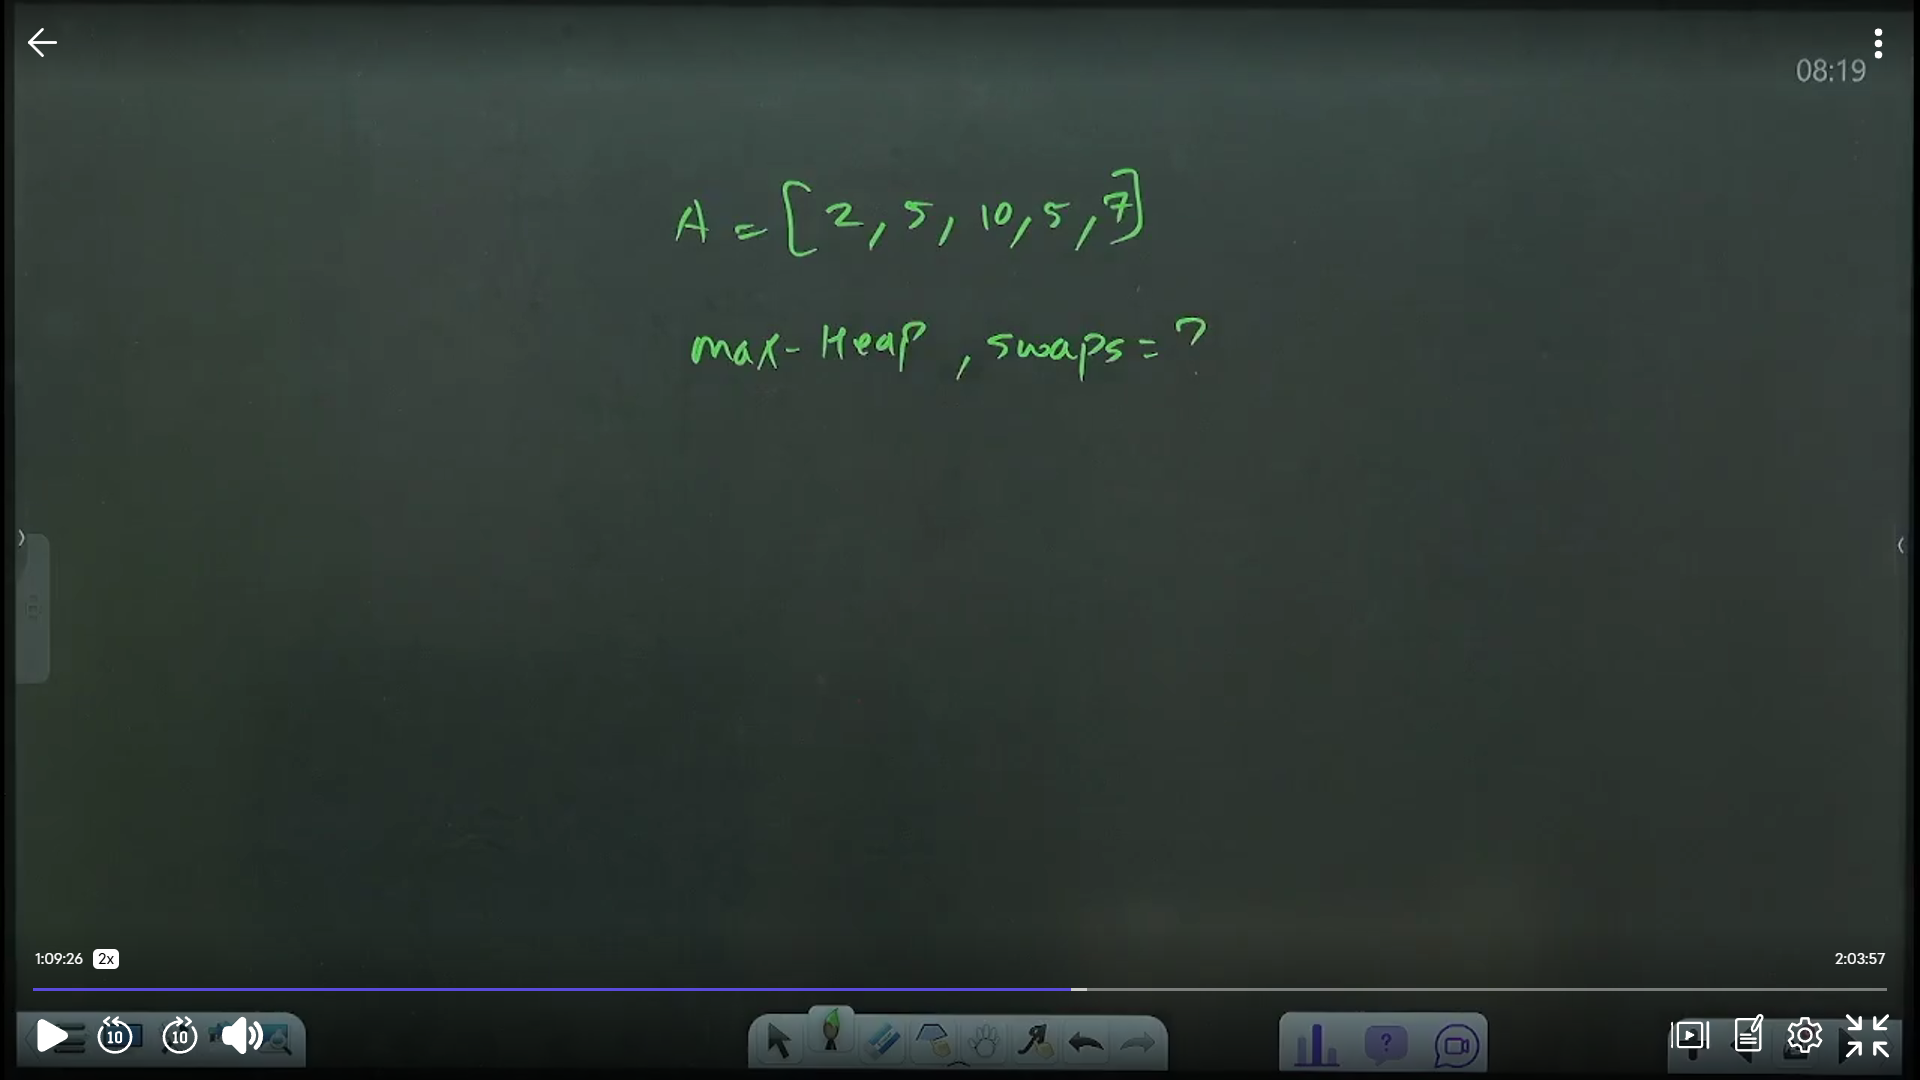 08:19
A = [2, 5, 10, 5, 7]
max-Heap, swaps = ?
1:09:26 2x 2:03:57
10 10
?